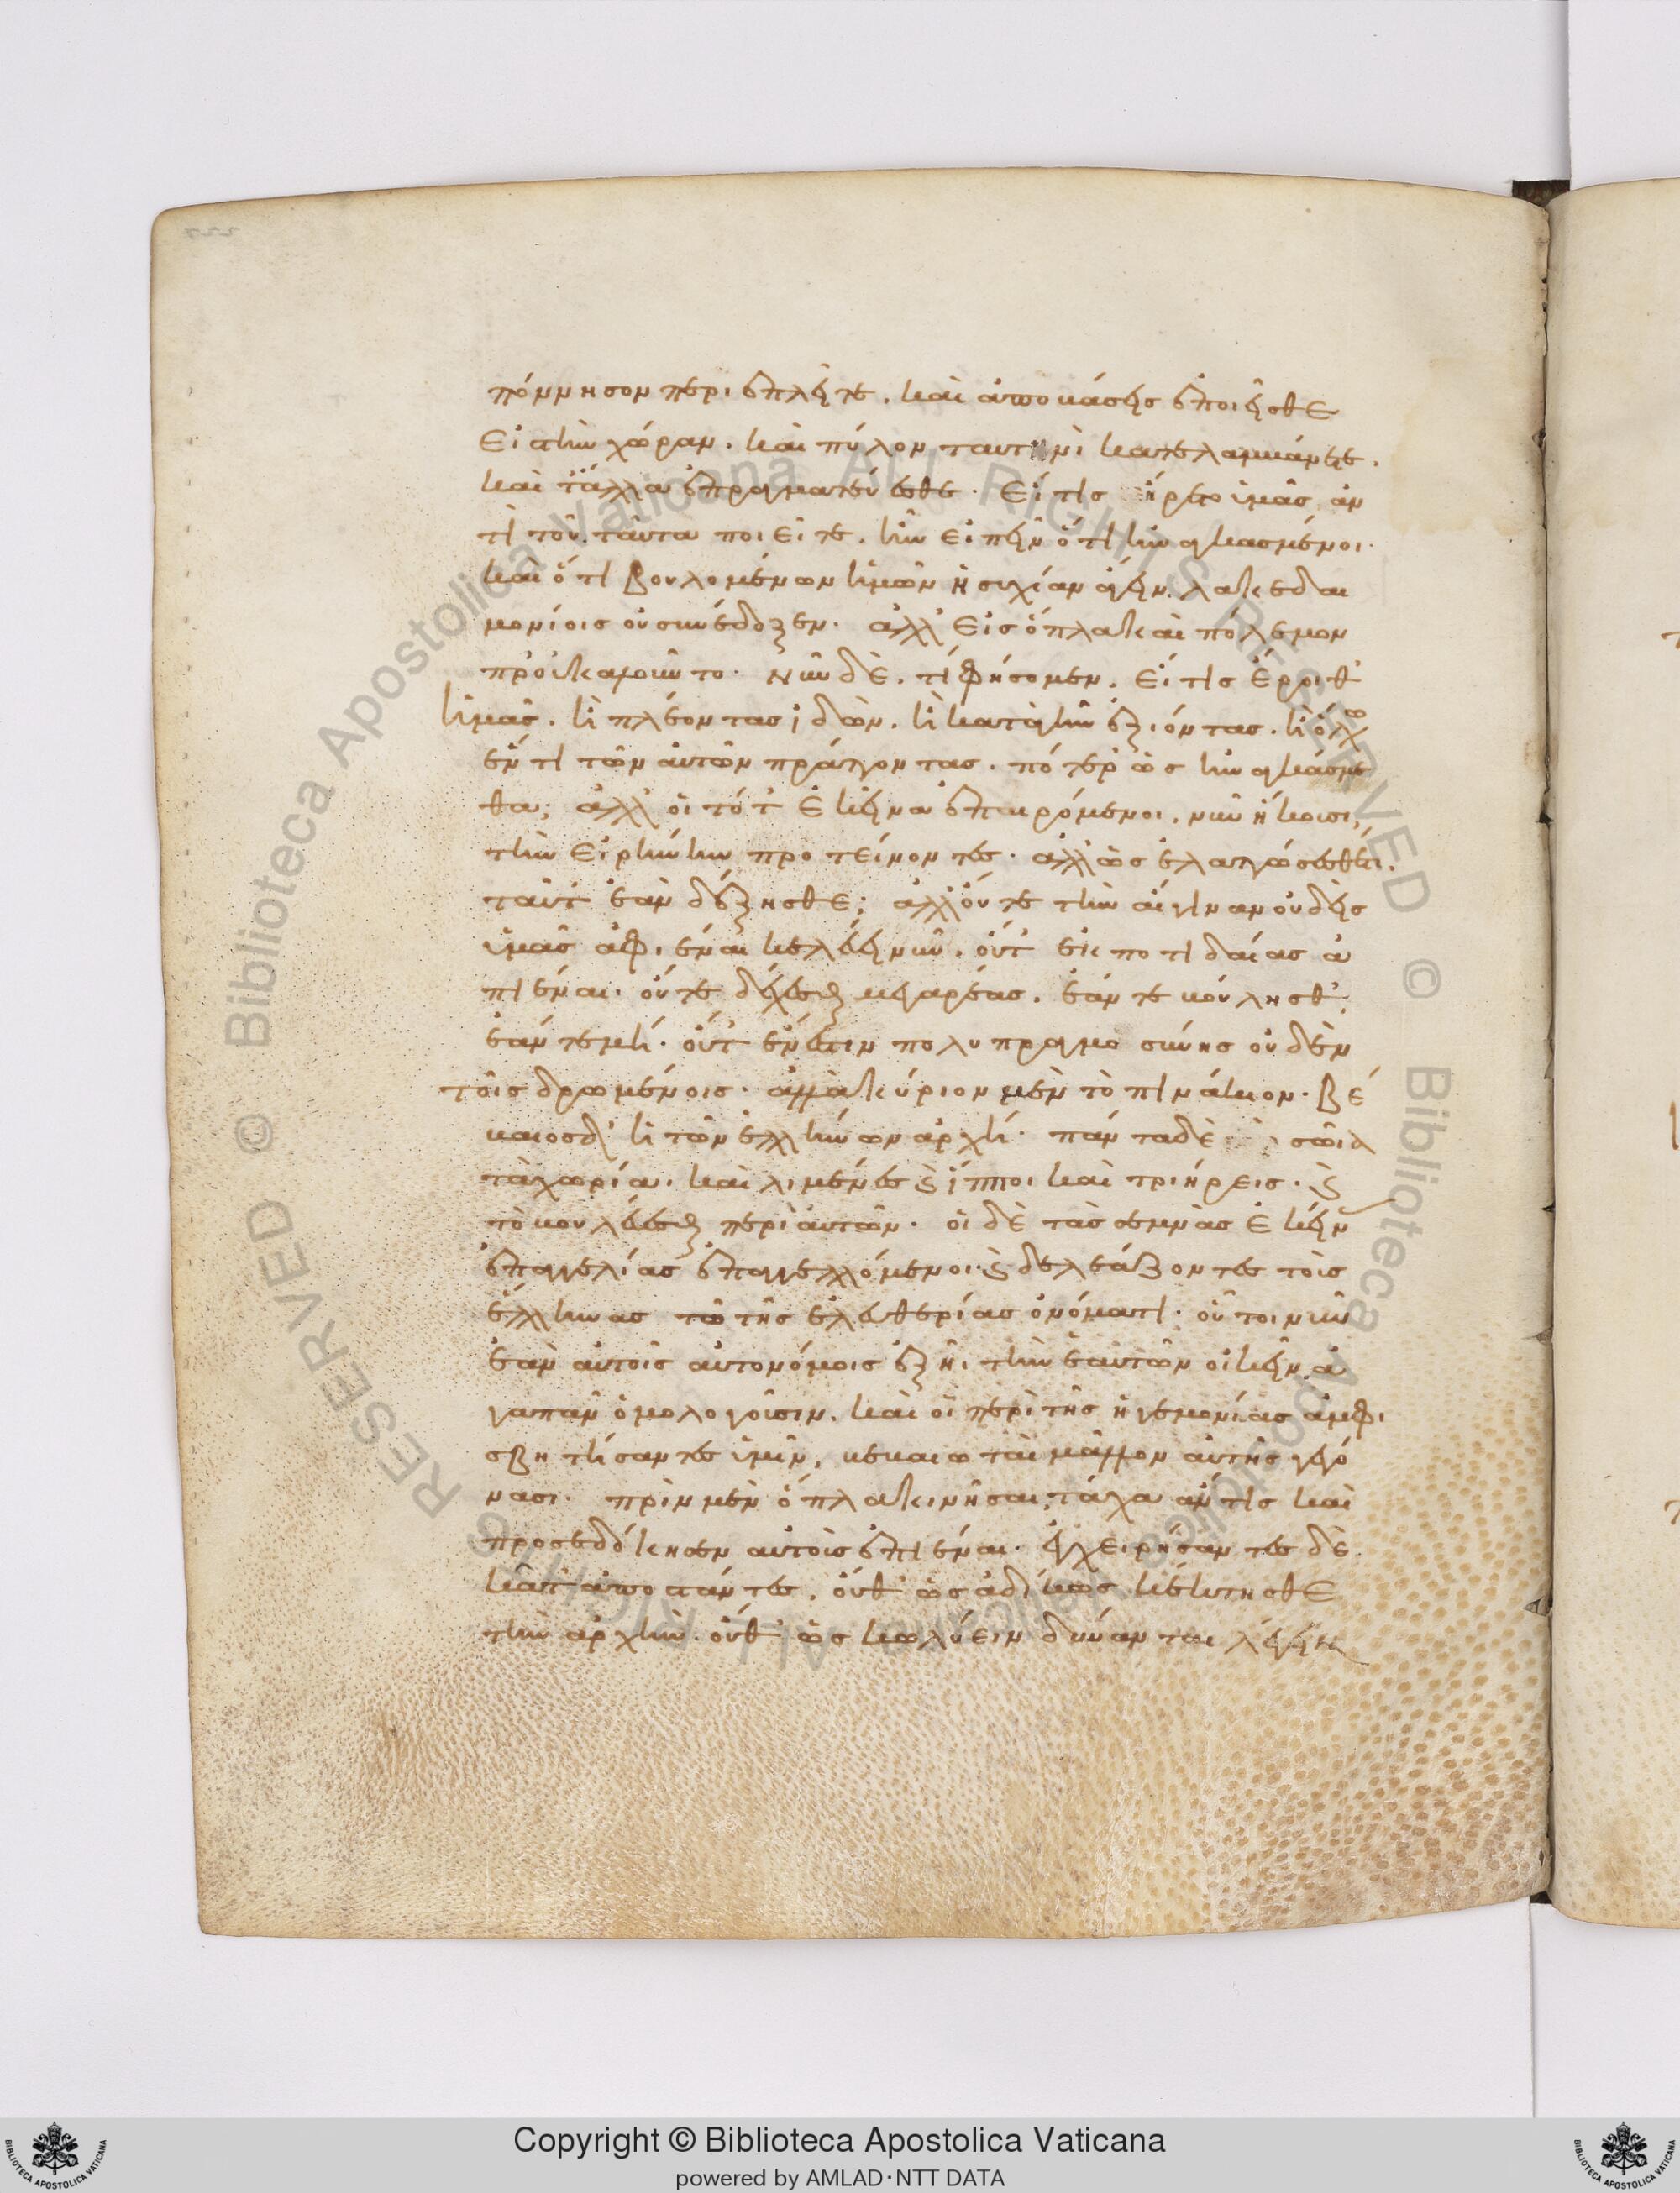 πόννησον περιεπλεῖτε. καὶ ἀποβάσεις ἐποιεῖσθε
εἰς τὴν χώραν. καὶ πύλον ταυτηνὶ κατελαμβάνετε.
καὶ τἄλλα ἐπραγματεύεσθε. εἴ τις ἤρετο ὑμᾶς ἀν
τὶ τοῦ ταῦτα ποιεῖτε. ἦν εἰπεῖν ὅτι ἠναγκασμένοι.
καὶ ὅτι βουλομένων ἡμῶν ἡσυχίαν ἄγειν. λακεδαι
μονίοις οὐ συνέδοξεν. ἀλλ' εἰς ὅπλα καὶ πόλεμον
προὐκαλοῦντο. νῦν δὲ. τί φήσομεν. εἴ τις ἔροιθ'
ἡμᾶς. ἢ πλέοντας ἰδὼν. ἢ κατὰ γῆν ἐξιόντας. ἢ ὅλω
ἕν τι τῶν αὐτῶν πράττοντας. πότερ' ὡς ἠναγκάσμε
θα; ἀλλ' οἱ τότ' ἐκεῖνα ἐπαιρόμενοι. νῦν ἥκουσι,
τὴν εἰρήνην προτείνοντες. ἀλλ' ὡς ἐλαττώσεσθαι.
ταῦτ' ἐὰν δέξησθε; ἀλλ' οὔτε τὴν αἴγιναν οὐδεὶς
ὑμᾶς ἀφιέναι κελεύει νῦν. οὔτ' ἐκ ποτιδαίας ἀ
πιέναι. οὔτε δέχεσθαι μεγαρέας. ἐάν τε βούλησθ'
ἐάν τε μή. οὔτ' ἔνεστιν πολυπραγμοσύνης οὐδὲν
τοῖς δρωμένοις. ἀλλὰ κύριον μὲν τὸ πινάκιον. βέ
βαιος δ' ἡ τῶν ἑλλήνων ἀρχή. πάντα δὲ σῶια
τὰ χωρία. καὶ λιμένες καὶ ἵπποι καὶ τριήρεις. καὶ
τὸ βουλεύεσθαι περὶ αὐτῶν. οἱ δὲ τὰς σεμνὰς ἐκείν
ἐπαγγελίας ἐπαγγελλόμενοι. καὶ δελεάζοντες τοὺς
ἕλληνας τῶ τῆς ἐλευθερίας ὀνόματι. οὗτοι νῦν
ἐὰν αὐτοῖς αὐτονόμοις ἐξῆι τὴν ἑαυτῶν οἰκεῖν ἀ
γαπᾶν ὁμολογοῦσιν. καὶ οἱ περὶ τῆς ἡγεμονίας ἀμφι
σβητήσαντες ὑμῖν, βεβαιωταὶ μᾶλλον αὐτῆς γεγό
νασι. πρὶν μὲν ὅπλα κινῆσαι, τάχα ἄν τις καὶ
προσεδόκησεν αὐτοὺς ἐπιέναι. ἐγχειρήσαντες δὲ
κᾆτ' ἀποστάντες. οὔθ' ὡς ἀδίκως κέκτησθε
τὴν ἀρχὴν. οὔθ' ὡς κωλύειν δύνανται λέγειν